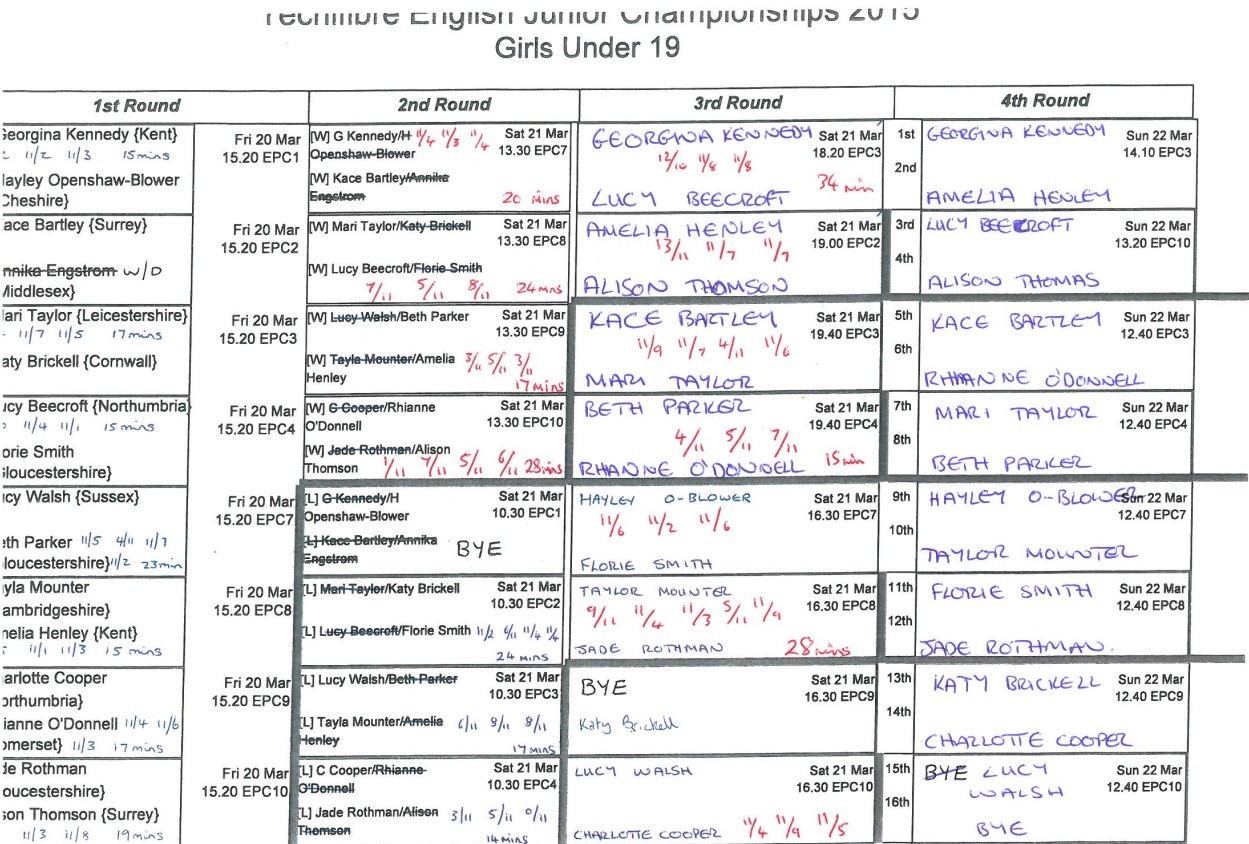 Techfibre English Junior Championships 2015
Girls Under 19
1st Round
2nd Round
3rd Round
4th Round
Georgina Kennedy {Kent}
11/2 11/3 15mins
Hayley Openshaw-Blower
Cheshire}
Fri 20 Mar
15.20 EPC1
[W] G Kennedy/H 11/4 11/3 11/4
Openshaw-Blower
[W] Kace Bartley/Annika
Engstrom 20 mins
Sat 21 Mar
13.30 EPC7
GEORGINA KENNEDY
12/10 11/8 11/8
34 min
LUCY BEECROFT
Sat 21 Mar
18.20 EPC3
1st
2nd
GEORGINA KENNEDY
AMELIA HENLEY
Sun 22 Mar
14.10 EPC3
ace Bartley {Surrey}
nnika Engstrom W/D
Middlesex}
Fri 20 Mar
15.20 EPC2
[W] Mari Taylor/Katy Brickell
[W] Lucy Beecroft/Florie Smith
7/11 5/11 8/11 24mns
Sat 21 Mar
13.30 EPC8
AMELIA HENLEY
13/11 11/7 11/7
ALISON THOMSON
Sat 21 Mar
19.00 EPC2
3rd
4th
LUCY BEECROFT
ALISON THOMAS
Sun 22 Mar
13.20 EPC10
ari Taylor {Leicestershire}
11/7 11/5 17mins
aty Brickell {Cornwall}
Fri 20 Mar
15.20 EPC3
[W] Lucy Walsh/Beth Parker
[W] Tayla Mounter/Amelia 3/11 5/11 3/11
Henley 17mins
Sat 21 Mar
13.30 EPC9
KACE BARTLEY
11/9 11/7 4/11 11/6
MARI TAYLOR
Sat 21 Mar
19.40 EPC3
5th
6th
KACE BARTLEY
RHIANNE O'DONNELL
Sun 22 Mar
12.40 EPC3
ucy Beecroft {Northumbria}
11/4 11/1 15mins
orie Smith
Gloucestershire}
Fri 20 Mar
15.20 EPC4
[W] C Cooper/Rhianne
O'Donnell
[W] Jade Rothman/Alison
Thomson 11/11 7/11 5/11 6/11 28mins
Sat 21 Mar
13.30 EPC10
BETH PARKER
4/11 5/11 7/11
RHANNE O'DONDELL 15min
Sat 21 Mar
19.40 EPC4
7th
8th
MARI TAYLOR
BETH PARKER
Sun 22 Mar
12.40 EPC4
icy Walsh {Sussex}
eth Parker 11/5 4/11 11/7
loucestershire} 11/2 23min
Fri 20 Mar
15.20 EPC7
[L] G Kennedy/H
Openshaw-Blower
[L] Kace Bartley/Annika
Engstrom BYE
Sat 21 Mar
10.30 EPC1
HAYLEY O-BLOWER
11/6 11/2 11/6
FLORIE SMITH
Sat 21 Mar
16.30 EPC7
9th
10th
HAYLEY O-BLOWER
TAYLOR MOUNTER
Sun 22 Mar
12.40 EPC7
ayla Mounter
ambridgeshire}
nelia Henley {Kent}
11/1 11/3 15 mins
Fri 20 Mar
15.20 EPC8
[L] Mari Taylor/Katy Brickell
[L] Lucy Beecroft/Florie Smith 11/2 6/11 11/4 11/4
24 mins
Sat 21 Mar
10.30 EPC2
TAYLOR MOUNTER
9/11 11/4 11/3 5/11 11/9
JADE ROTHMAN 28mins
Sat 21 Mar
16.30 EPC8
11th
12th
FLORIE SMITH
JADE ROTHMAN.
Sun 22 Mar
12.40 EPC8
arlotte Cooper
orthumbria}
ianne O'Donnell 11/4 11/6
omerset} 11/3 17mins
Fri 20 Mar
15.20 EPC9
[L] Lucy Walsh/Beth Parker
[L] Tayla Mounter/Amelia 6/11 8/11 8/11
Henley 17mins
Sat 21 Mar
10.30 EPC3
BYE
Katy Brickell
Sat 21 Mar
16.30 EPC9
13th
14th
KATY BRICKELL
CHARLOTTE COOPER
Sun 22 Mar
12.40 EPC9
de Rothman
oucestershire}
son Thomson {Surrey}
11/3 11/8 19mins
Fri 20 Mar
15.20 EPC10
[L] C Cooper/Rhianne
O'Donnell
[L] Jade Rothman/Alison 3/11 5/11 0/11
Thomson 14mins
Sat 21 Mar
10.30 EPC4
LUCY WALSH
CHARLOTTE COOPER 11/4 11/9 11/5
Sat 21 Mar
16.30 EPC10
15th
16th
BYE LUCY
WALSH
BYE
Sun 22 Mar
12.40 EPC10